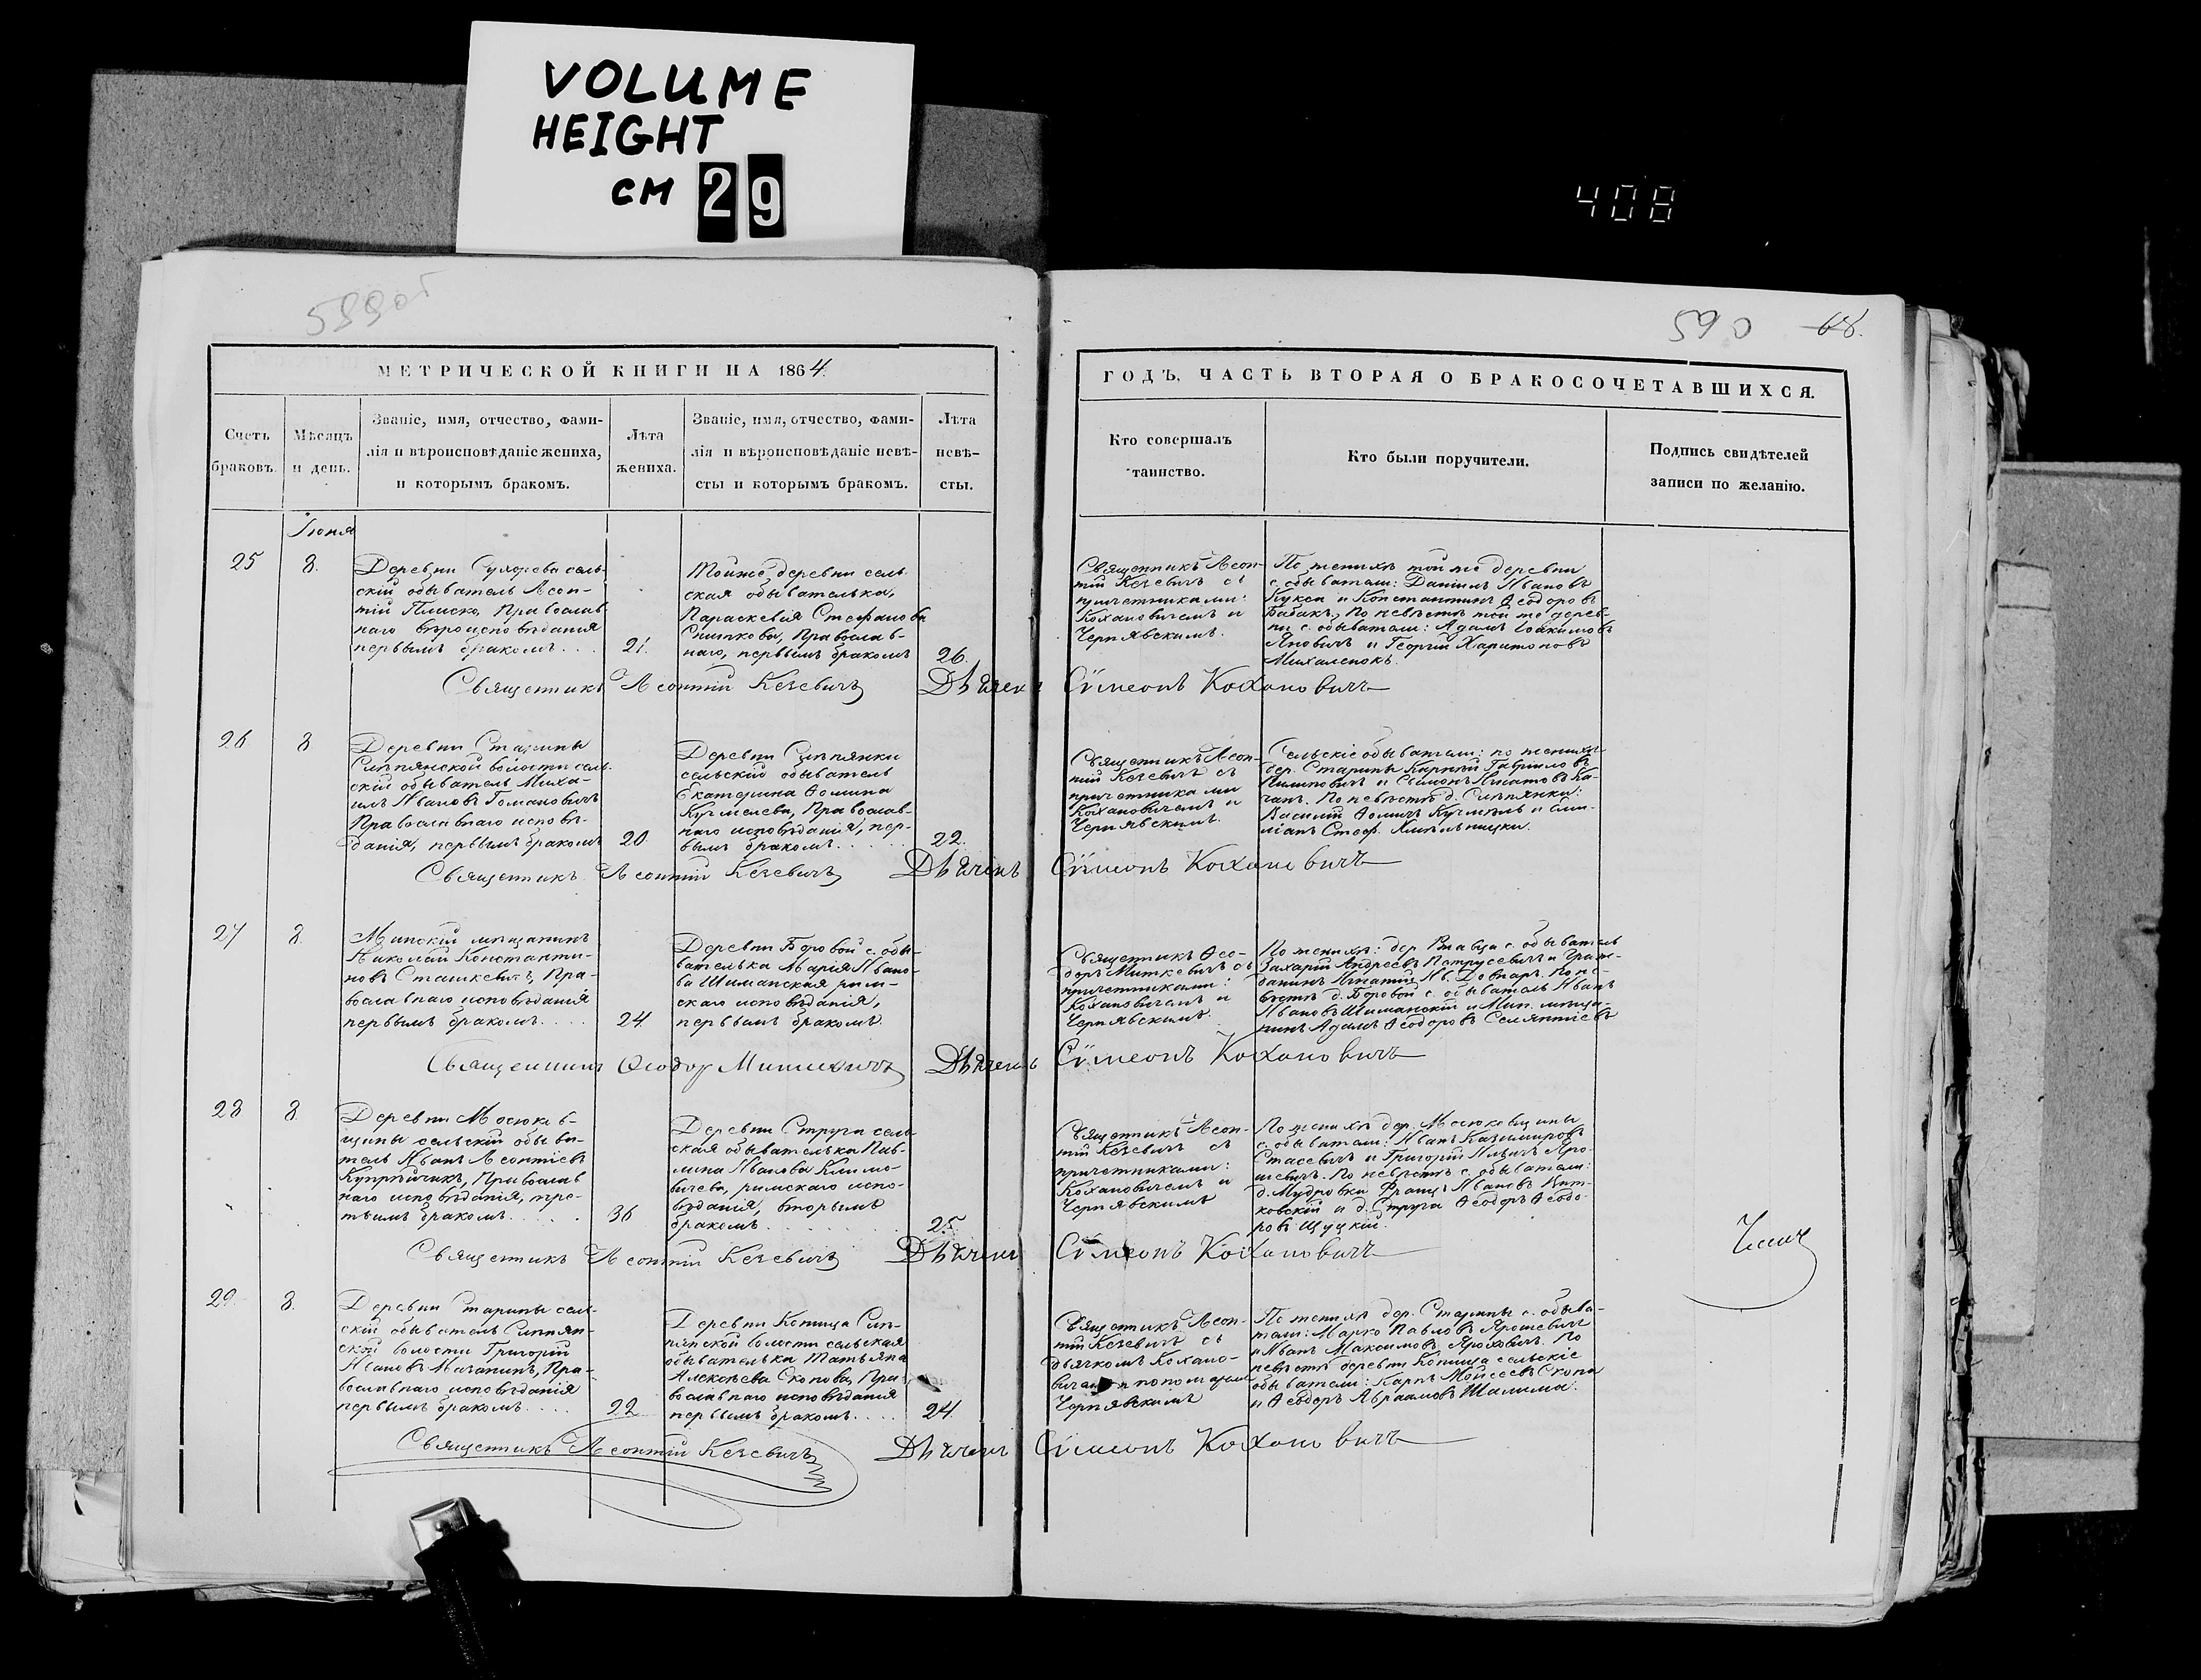 VOLUME
HEIGHT
CM 29
408
590 68.
МЕТРИЧЕСКОЙ КНИГИ НА 1864
Счетъ браковъ.
Мѣсяцъ и день.
Званіе, имя, отчество, фами-
лія и вѣроисповѣданіе жениха,
и которымъ бракомъ.
Лѣта жениха.
Званіе, имя, отчество, фами-
лія и вѣроисповѣданіе невѣ-
сты и которымъ бракомъ.
Лѣта невѣ-
сты.
ГОДЪ, ЧАСТЬ ВТОРАЯ О БРАКОСОЧЕТАВШИХСЯ.
Кто совершалъ
таинство.
Кто были поручители.
Подпись свидѣтелей
записи по желанію.
Іюня
25
8.
Деревни сель-
скій обыватель Леон-
тій Плиско, Православ
наго вѣроисповѣданія
первымъ бракомъ. . .
21.
Тойже деревни сель-
ская обывателька,
Параскевія Стефанова
Сниткова, Православ-
наго, первымъ бракомъ
26.
Священникъ Леон-
тій Кезевичъ съ
причетниками:
Кохановичемъ и
Чернявскимъ.
По женихѣ той же деревни
с. обыватели: Даніилъ Ивановъ
Кукса и Константинъ Ѳеодоровъ
Бабакъ, По невѣстѣ той же дерев-
ни с. обыватели: Адамъ Іоакимовъ
Яновичъ и Георгій Харитоновъ
Михаленокъ.
Священникъ Леонтій Кезевичъ Дьячекъ Сѵмеонъ Кохановичъ
26
8
Деревни Старины
Слѣпянской волости сель-
скій обыватель Миха-
илъ Ивановъ Томановичъ
Православнаго исповѣ-
данія, первымъ бракомъ
20.
Деревни Слѣпянки
сельскій обыватель
Екатерина Ѳомина
Кузмелева, Православ-
наго исповѣданія, пер-
вымъ бракомъ. . . . .
22.
Священникъ Леон-
тій Кезевичъ съ
причетниками
Кохановичемъ и
Чернявскимъ.
Сельскіе обыватели: по женихѣ
дер. Старины Гавриловъ
Пилиповичъ и Сѵмонъ Игнатовъ Ка-
чанъ. По невѣстѣ д. Слѣпянки:
Василій Ѳоминъ и
Стеф.
Священникъ Леонтій Кезевичъ Дьячекъ Сѵмеонъ Кохановичъ
27
8.
Минскій мѣщанинъ
Николай Константи-
новъ Сташкевичъ, Пра-
вославнаго исповѣданія
первымъ бракомъ. . . .
24
Деревни Боровой с. обы-
вателька Марія Ивано-
ва Шиманская рим-
скаго исповѣданія,
первымъ бракомъ.
Священникъ Ѳео-
доръ Миткевичъ съ
причетниками:
Кохановичемъ и
Чернявскимъ.
По женихѣ: дер. с. обыватель
Захарій Андреевъ Петрусевичъ и Граж-
данинъ Игнатій Ив. Довнаръ. По не-
вѣстѣ д. Боровой с. обыватель Иванъ
Ивановъ Шиманскій и Мин. мѣща-
нинъ Адамъ Ѳеодоровъ
Священникъ Ѳеодоръ Миткевичъ Дьячекъ Сѵмеонъ Кохановичъ
28
8.
Деревни Масюков-
щины сельскій обыва-
тель Иванъ Леонтіевъ
Купрѣйчикъ, Православ
наго исповѣданія, тре-
тьимъ бракомъ. . . . .
36
Деревни Струга сель-
ская обывателька Пав-
лина Иванова Климо-
вичева, римскаго испо-
вѣданія, вторымъ
бракомъ. . . . . . .
25.
Священникъ Леон-
тій Кезевичъ съ
причетниками:
Кохановичемъ и
Чернявскимъ
По женихѣ дер. Масюковщины
с. обыватели: Иванъ Казимировъ
Стасевичъ и Григорій Ильичъ Яро-
шевичъ. По невѣстѣ с. обыватели:
д. Мудровки Францъ Ивановъ Вит-
ковскій и д. Струга Ѳеодоръ Ѳеодо-
ровъ Щуцкій.
Священникъ Леонтій Кезевичъ Дьячекъ Сѵмеонъ Кохановичъ
29.
8.
Деревни Старины сель-
скій обыватель Слѣпян-
ской волости Григорій
Ивановъ Мазанинъ, Пра-
вославнаго исповѣданія
первымъ бракомъ. . . .
22
Деревни Копища Слѣ-
пянской волости сельская
обывателька Татьяна
Алексѣева Скопова, Пра-
вославнаго исповѣданія
первымъ бракомъ. . . .
24.
Священникъ Леон-
тій Кезевичъ съ
дьячкомъ Кохано-
вичемъ и пономаремъ
Чернявскимъ
По женихѣ дер. Старины с. обыва-
тели: Марко Павловъ Ярошевичъ
и Иванъ Максимовъ Ярохович. По
невѣстѣ деревни Копища сельскіе
обыватели: Карпъ Моисеевъ Скопа
и Ѳеодоръ Абрамовъ Шалима.
Священникъ Леонтій Кезевичъ Дьячекъ Сѵмеонъ Кохановичъ